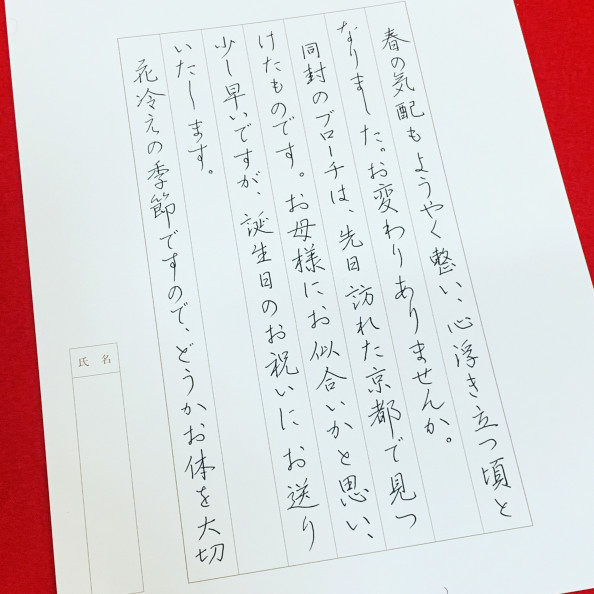 春の気配もようやく整い、心浮き立つ頃と
なりました。お変わりありませんか。
同封のブローチは、先日訪れた京都で見つ
けたものです。お母様にお似合いかと思い、
少し早いですが、誕生日のお祝いにお送り
いたします。
花冷えの季節ですので、どうかお体を大切
氏名